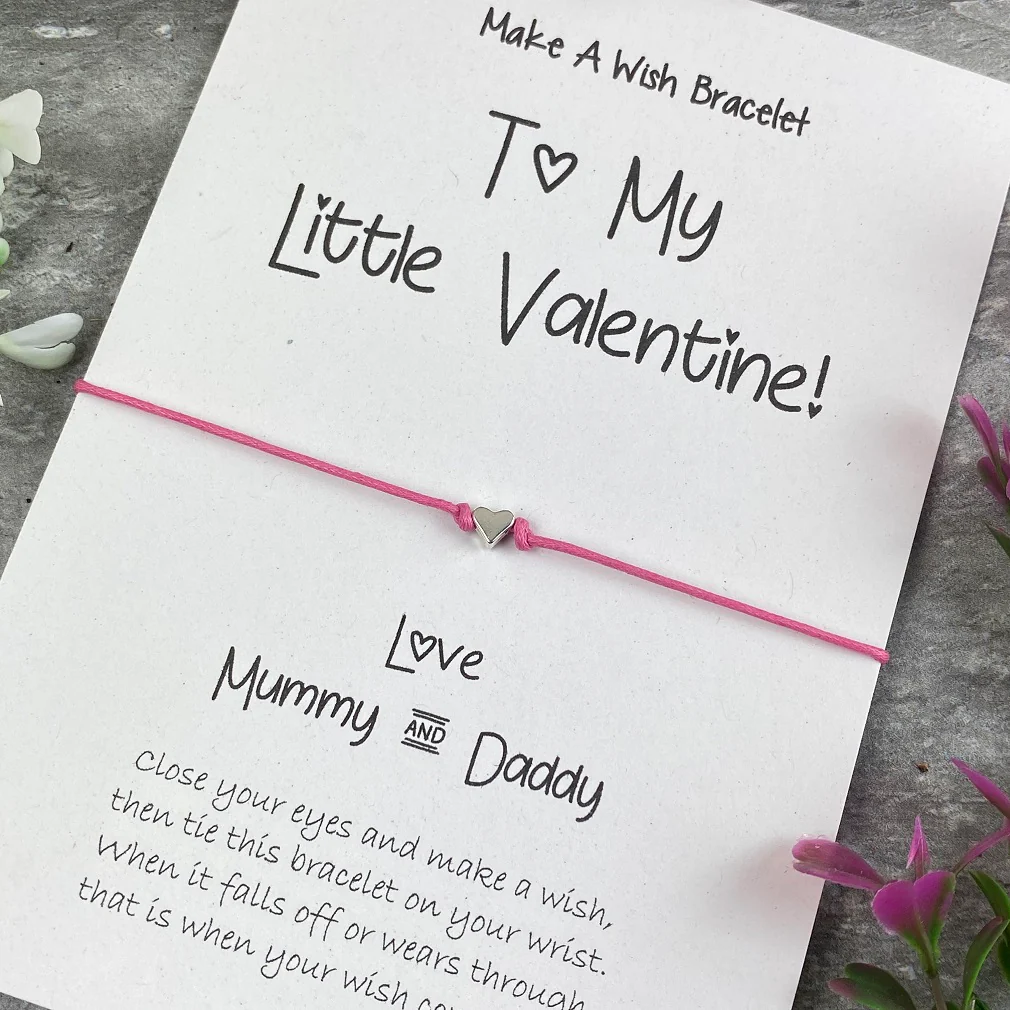 Make A Wish Bracelet
To My
Little Valentine!
Love
Mummy AND Daddy
Close your eyes and make a wish,
then tie this bracelet on your wrist.
When it falls off or wears through
that is when your wish